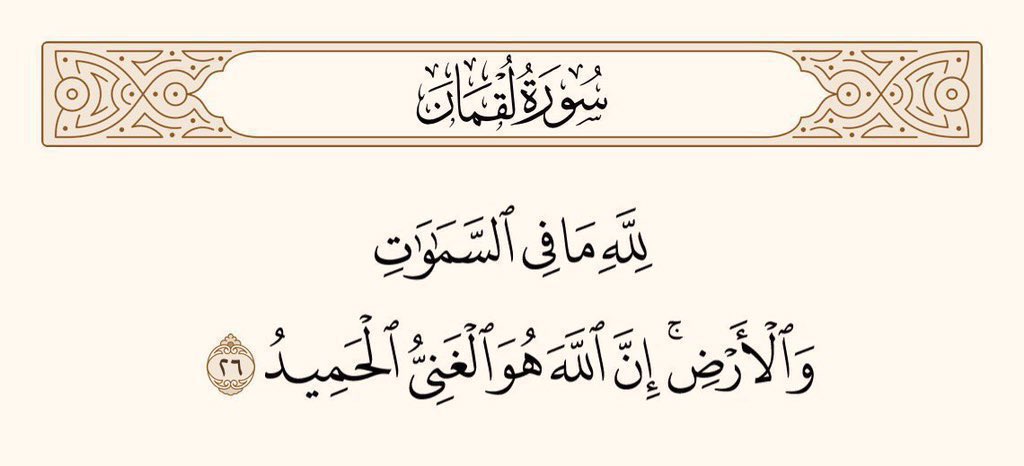 سُورَةُ لُقۡمَانَ
لِلَّهِ مَا فِي ٱلسَّمَٰوَٰتِ
وَٱلۡأَرۡضِۚ إِنَّ ٱللَّهَ هُوَ ٱلۡغَنِيُّ ٱلۡحَمِيدُ ٢٦